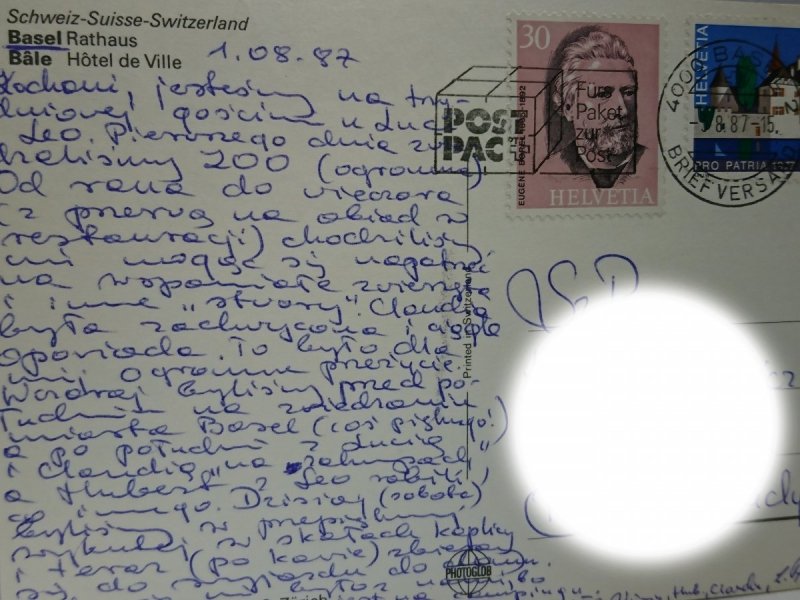 Schweiz-Suisse-Switzerland
Basel Rathaus
Bâle Hôtel de Ville
1.08.87
Kochani, jesteśmy na trzy-
dniowej gościnie u Luci
i Leo. Pierwszego dnia zwie-
dzaliśmy ZOO (ogromne)
Od rana do wieczora
(z przerwą na obiad w
restauracji) chodziliśmy
nie mogąc się nagapić
na wspaniałe zwierzęta
i inne "stwory". Claudia
była zachwycona i ciągle
opowiada. To było dla
niej ogromne przeżycie.
Wczoraj byliśmy przed po-
łudniem na zwiedzaniu
miasta Basel (coś pięknego!)
a po południu z Lucią
i Claudią "na zakupach"
a Hubert z Leo robili
innego. Dzisiaj (sobota)
byliśmy w przepięknej
wykutej w skałach kaplicy
i teraz (po kawie) zbieramy
się do wyjazdu do domu.
30
HELVETIA
EUGENE BOREL 1892
POST
PAC
Fürs
Paket
zur
Post
HELVETIA
PRO PATRIA
4000 BAS
8.87-15.
BRIEFVERSA
Printed in Switzerland
PHOTOGLOB